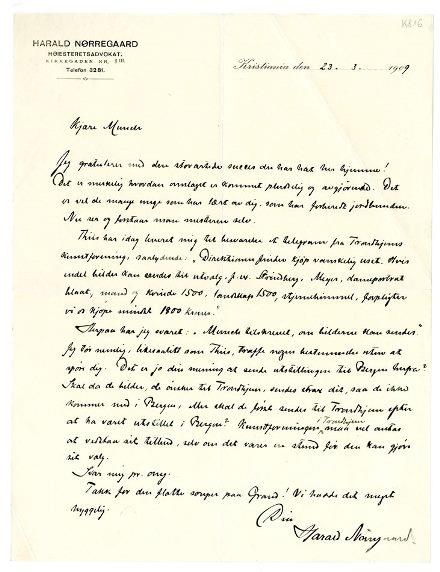 K816
HARALD NØRREGAARD
HØIESTERETSADVOKAT.
KIRKEGADEN NR.
Telefon 3281.
Kristiania den 23 - 3 1909
Kjære Munch
Jeg gratulerer med den storartede succes du har hat her hjemme!
Det er mærkelig hvordan omslaget er kommet pludselig og avgjørende. Det
er vel de mange unge som har lært av dig, som har forberedt jordbunden.
Nu ser og forstaar man mesteren selv.
Thiis har idag leveret mig til besvarelse et telegram fra Trondhjems
Kunstforening, saalydende: "Direktionen finder kjøp vanskelig uset. Hvis
endel billeder kan sendes til utvalg, f. ex. Strindberg, Meyer, dameportræt
blaat, mand og kvinde 1500, landskap 1500, stjernehimmel, forpligter
vi os kjøpe mindst 1800 kroner."
Herpaa har jeg svaret: "Munch telefonerer, om billederne kan sendes."
Jeg tør nemlig, likesaalitt som Thiis, træffe nogen bestemmelse uten at
spørre dig. Det er jo din mening at sende utstillingen til Bergen herfra?
Skal da de billeder, de ønsker til Trondhjem, sendes straks dit, saa de ikke
kommer med i Bergen, eller skal de først sendes til Trondhjem efter
at ha været utstillet i Bergen? Kunstforeningen i Trondhjem maa vel ønskes
at vedbli sit tilbud, selv om det varer en stund før den kan gjøre
sit valg.
Svar mig pr. omg.
Takk for den flotte souper paa Grand! Vi hadde det meget
hyggelig.
Din
Harald Nørregaard